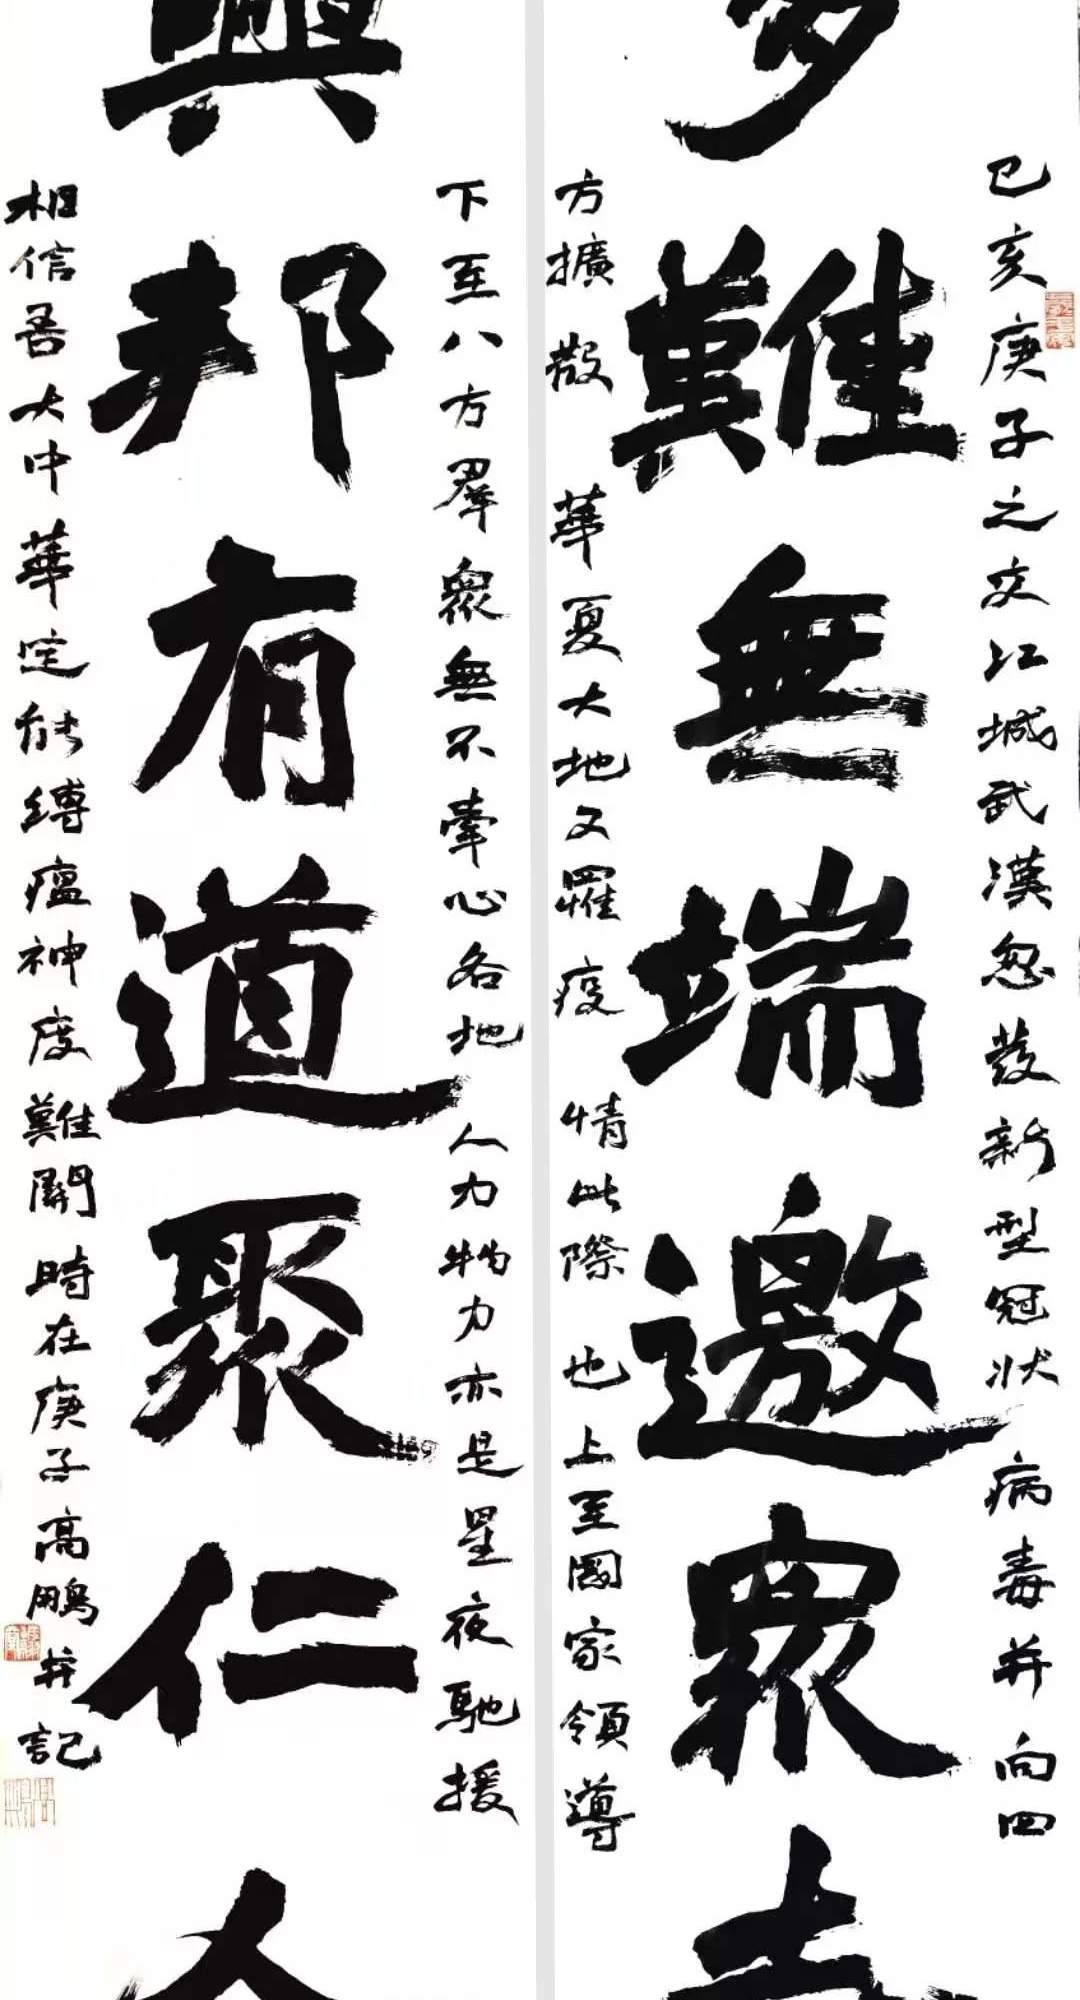 多難無端邀眾
己亥庚子之交江城武漢忽發新型冠狀病毒并向四
方擴散華夏大地又罹疫情此際也上至國家領導
興邦有道聚仁
下至八方羣眾無不牽心各地人力物力亦是星夜馳援
相信吾大中華定能縛瘟神度難關時在庚子高鵬并記